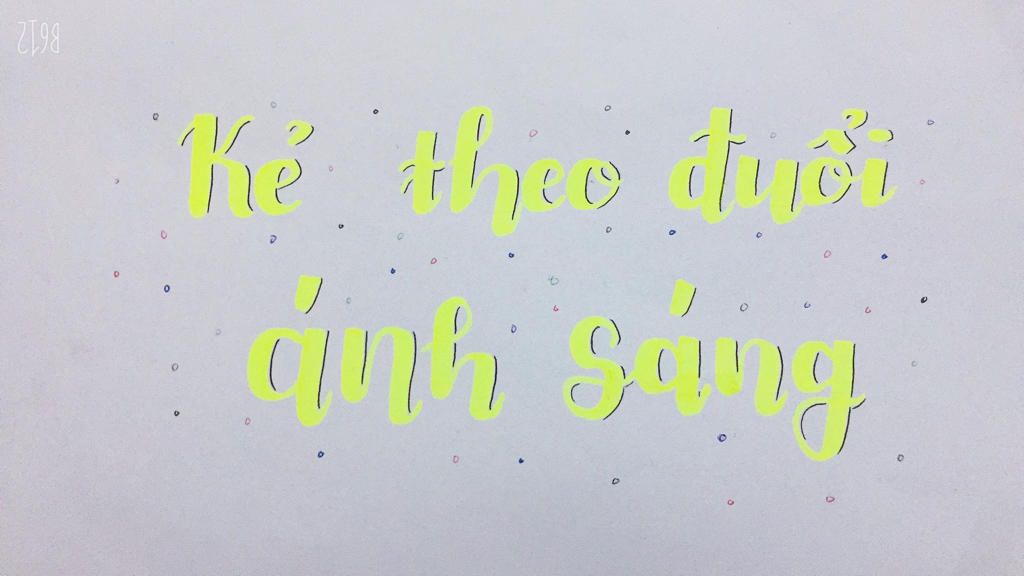 B612
Kẻ theo đuổi
ánh sáng